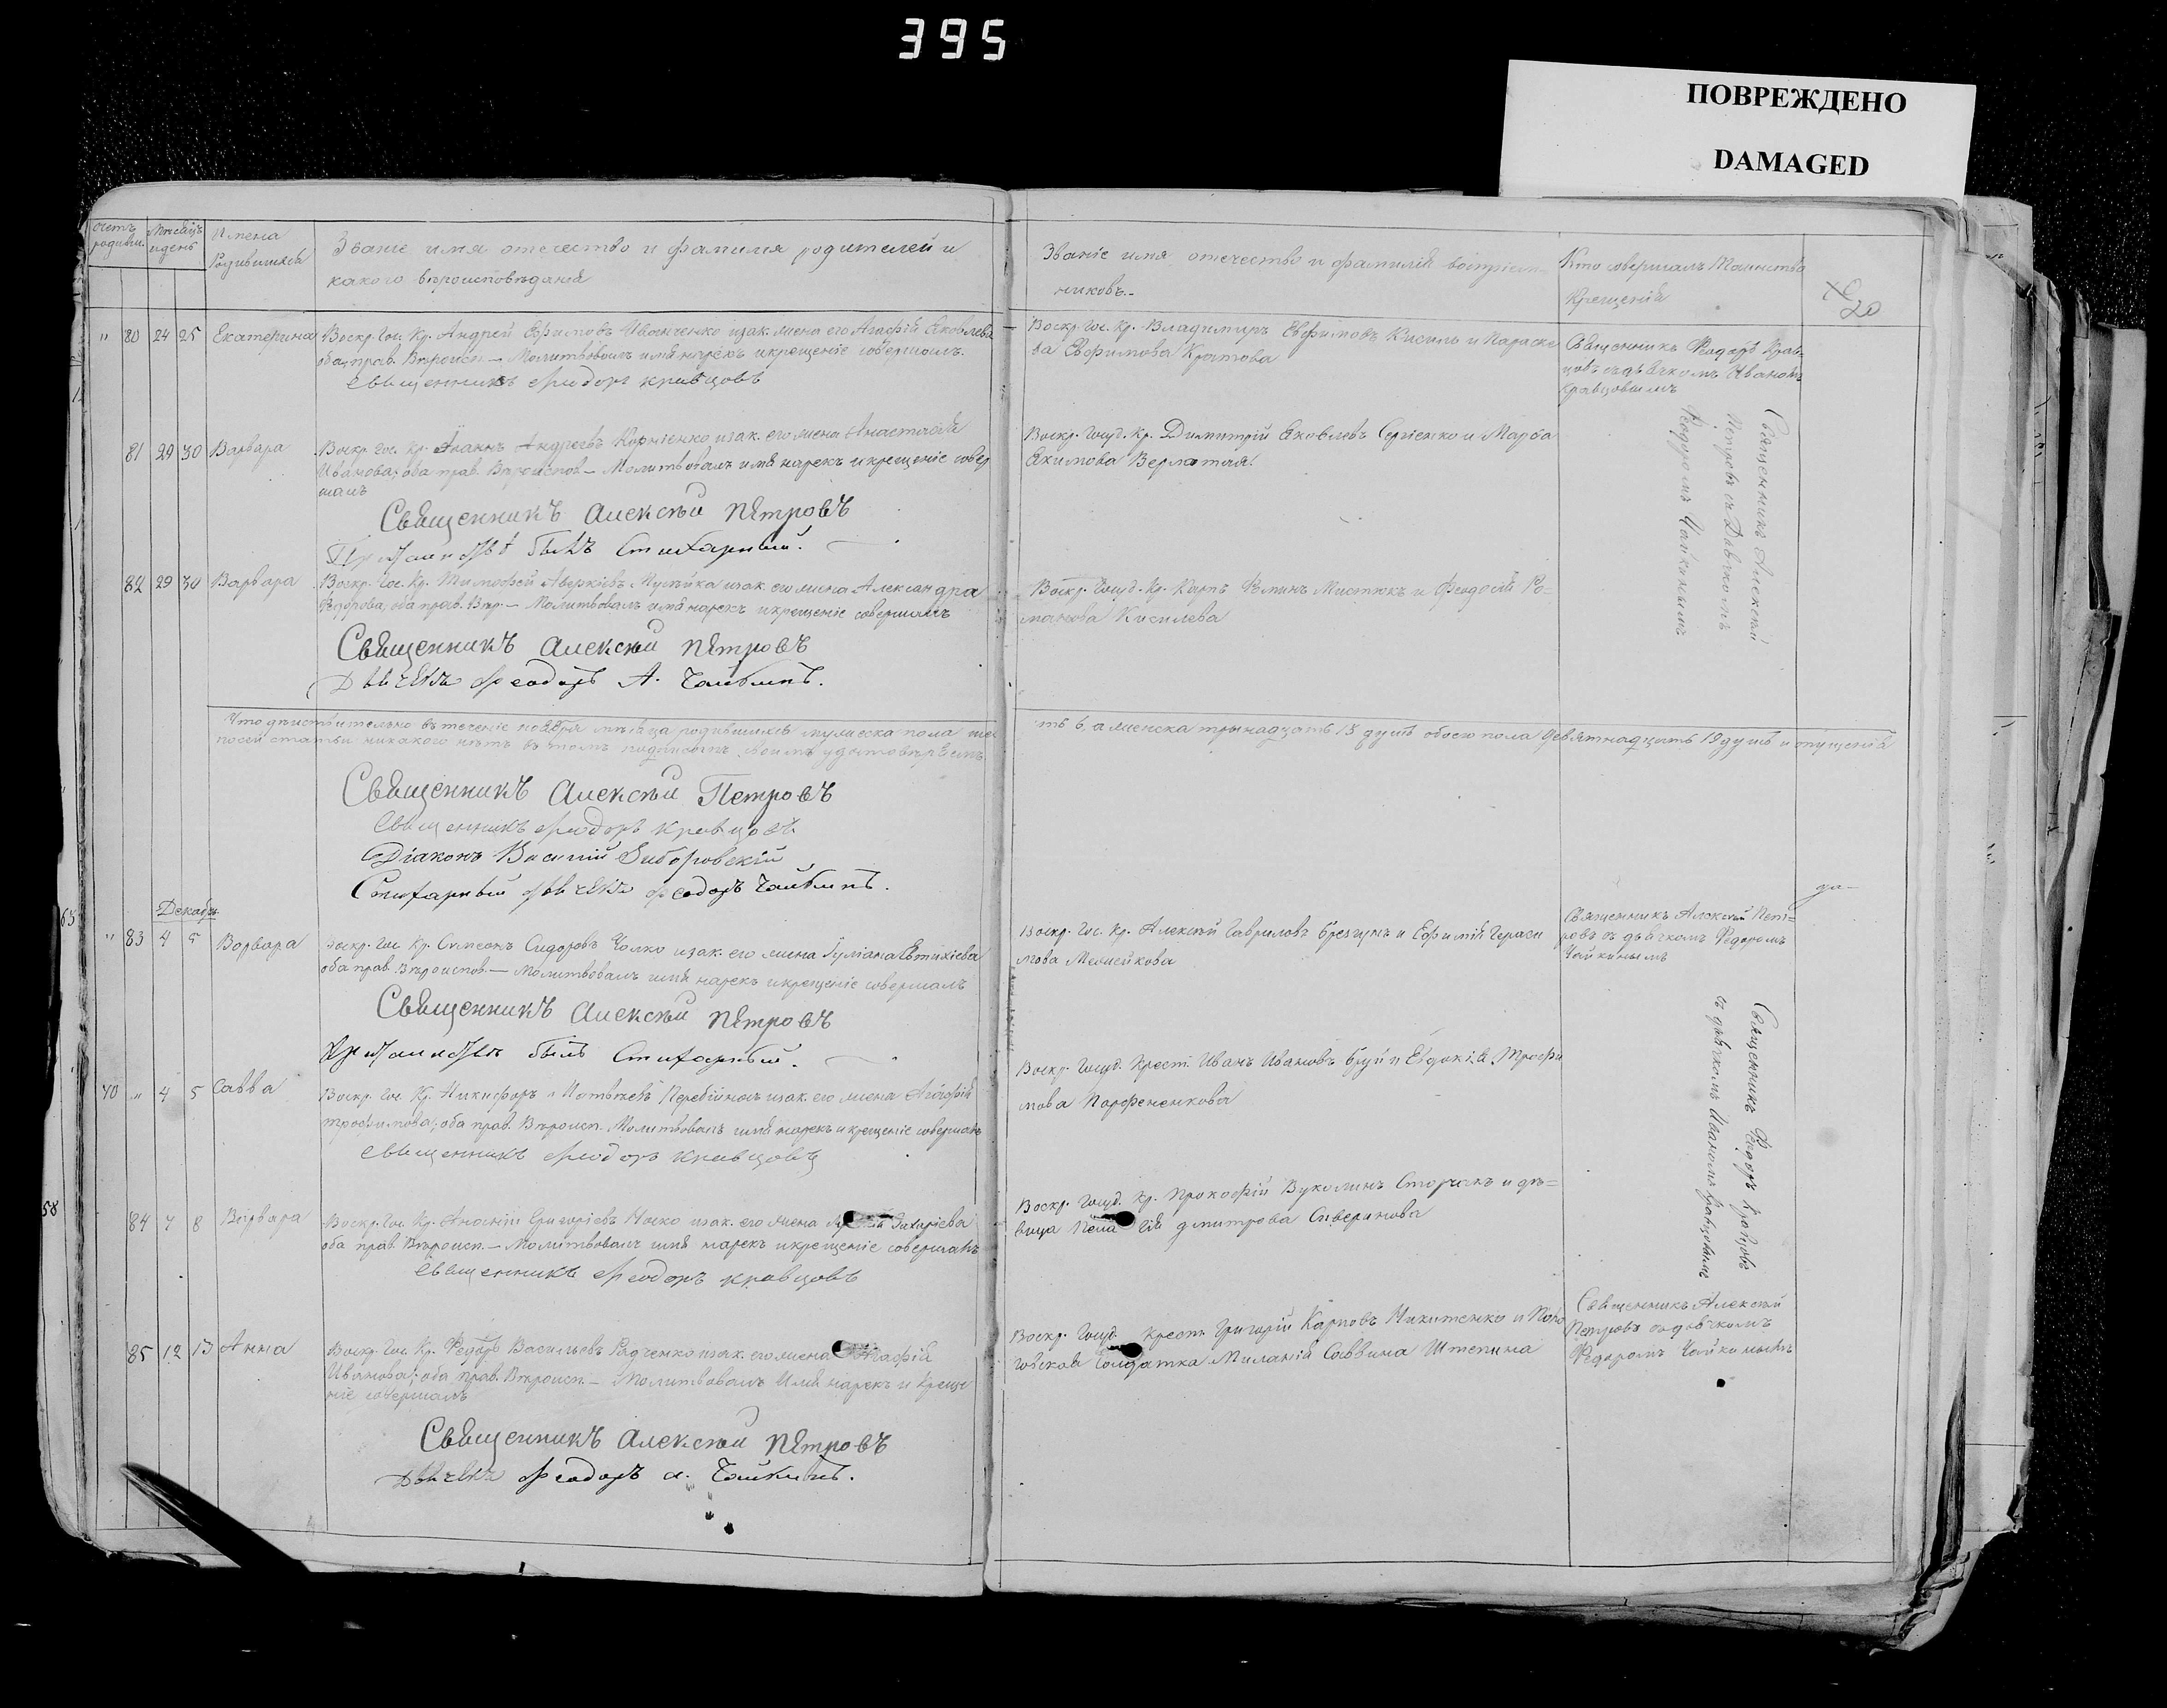 395
ПОВРЕЖДЕНО
DAMAGED
Счетъ родивш.
Мѣсяцъ и день
Имена Родившихся
Званіе имя отечество и фамилія родителей и
какого вѣроисповѣданія
Званіе имя отечество и фамилія воспріем
никовъ.-
Кто совершалъ Таинство
Крещенія
20
" 80 24 25 Екатерина
Воскр. Гос. Кр. Андрей Ефимовъ Иванченко изак. жена его Агафія Яковлева
оба прав. Вѣроисп. — Молитвовалъ имя нарекъ икрещеніе совершалъ.
Священникъ Феодоръ Кравцовъ
Воскр. Гос. Кр. Владимиръ Евфимовъ Кисиль и Параске
ва Евфимова Кротова
Священникъ Феодоръ Крав-
цовъ съдьячкомъ Иваномъ
Кравцовымъ
81 29 30 Варвара
Воскр. Гос. Кр. Іоаннъ Андреевъ Корніенко изак. его жена Анастасія
Иванова; оба прав. Вѣроиспов. — Молитвовалъ имя нарекъ икрещеніе совер
шалъ
Священникъ Алексѣй Петровъ
При таинствѣ былъ Стихарный.
Воскр. Госуд. Кр. Димитрій Яковлевъ Сергіенко и Марѳа
Екимова Верлатая.
Священникъ Алексѣй
Петровъ съ Дьячкомъ
Ѳедоромъ Чайкинымъ
82 29 30 Варвара
Воскр. Гос. Кр. Тимофей Аверкіевъ Мулѣйка изак. его жена Александра
Ѳедорова, оба прав. Вѣр. — Молитвовалъ имя нарекъ икрещеніе совершалъ
Священникъ Алексѣй Петровъ
Дьячекъ Феодоръ А. Чайкинъ.
Воскр. Госуд. Кр. Карпъ Ѳоминъ Мистюкъ и Феодосія Ро-
манова Кисилева
Что дѣйствительно въ теченіе ноября мѣсяца родившихся мужеска пола ше
ть 6, а женска тринадцать 13 душъ обоего пола девятнадцать 19 душъ и опущенія
посей статьи никакого нѣтъ въ томъ подписомъ своимъ удостовѣряемъ
Священникъ Алексѣй Петровъ
Священникъ Феодоръ Кравцовъ
Діаконъ Василій Зиборовскій
Стихарный Дьячекъ Феодоръ Чайкинъ.
Декабрь
" 83 4 5 Варвара
Воскр. Гос. Кр. Симеонъ Сидоровъ Чалко изак. его жена Іуліана Евтихіева
оба прав. Вѣроиспов. — Молитвовалъ имя нарекъ икрещеніе совершалъ
Священникъ Алексѣй Петровъ
При таинствѣ былъ Стихарный.
Воскр. Гос. Кр. Алексѣй Гавриловъ Брезгунъ и Ефимія Гераси
мова Мелейкова
Священникъ Алексѣй Пет-
ровъ съ дьячкомъ Ѳедоромъ
Чайкинымъ
40 " 4 5 Савва
Воскр. Гос. Кр. Никифоръ Матвѣевъ Перебійносъ изак. его жена Агафія
трофимова; оба прав. Вѣроисп. Молитвовалъ имя нарекъ и крещеніе совершалъ
Священникъ Феодоръ Кравцовъ
Воскр. Госуд. Крест. Иванъ Ивановъ Буй и Евдокія Трофи
мова Парфененкова
Священникъ Ѳедоръ Кравцовъ
съ дьячкомъ Иваномъ Кравцовымъ
84 7 8 Варвара
Воскр. Гос. Кр. Ананій Григоріевъ Носко изак. его жена Захаріева
оба прав. Вѣроисп. — Молитвовалъ имя нарекъ икрещеніе совершалъ
Священникъ Феодоръ Кравцовъ
Воскр. Госуд. Кр. Прокофій Вуколинъ Сторчакъ и дѣ-
вица Пела гія дмитрова Сиверинова
85 12 13 Анна
Воскр. Гос. Кр. Ѳедоръ Васильевъ Радченко изак. его жена Агафія
Иванова; оба прав. Вѣроисп. — Молитвовалъ Имя нарекъ и Креще
ніе совершалъ
Священникъ Алексѣй Петровъ
Дьячекъ Феодоръ А. Чайкинъ.
Воскр. Госуд. Крест. Григорій Карповъ Никитенко и
солдатка Миланія Саввина Штепина
Священникъ Алексѣй
Петровъ съдьячкомъ
Ѳедоромъ Чайкинымъ